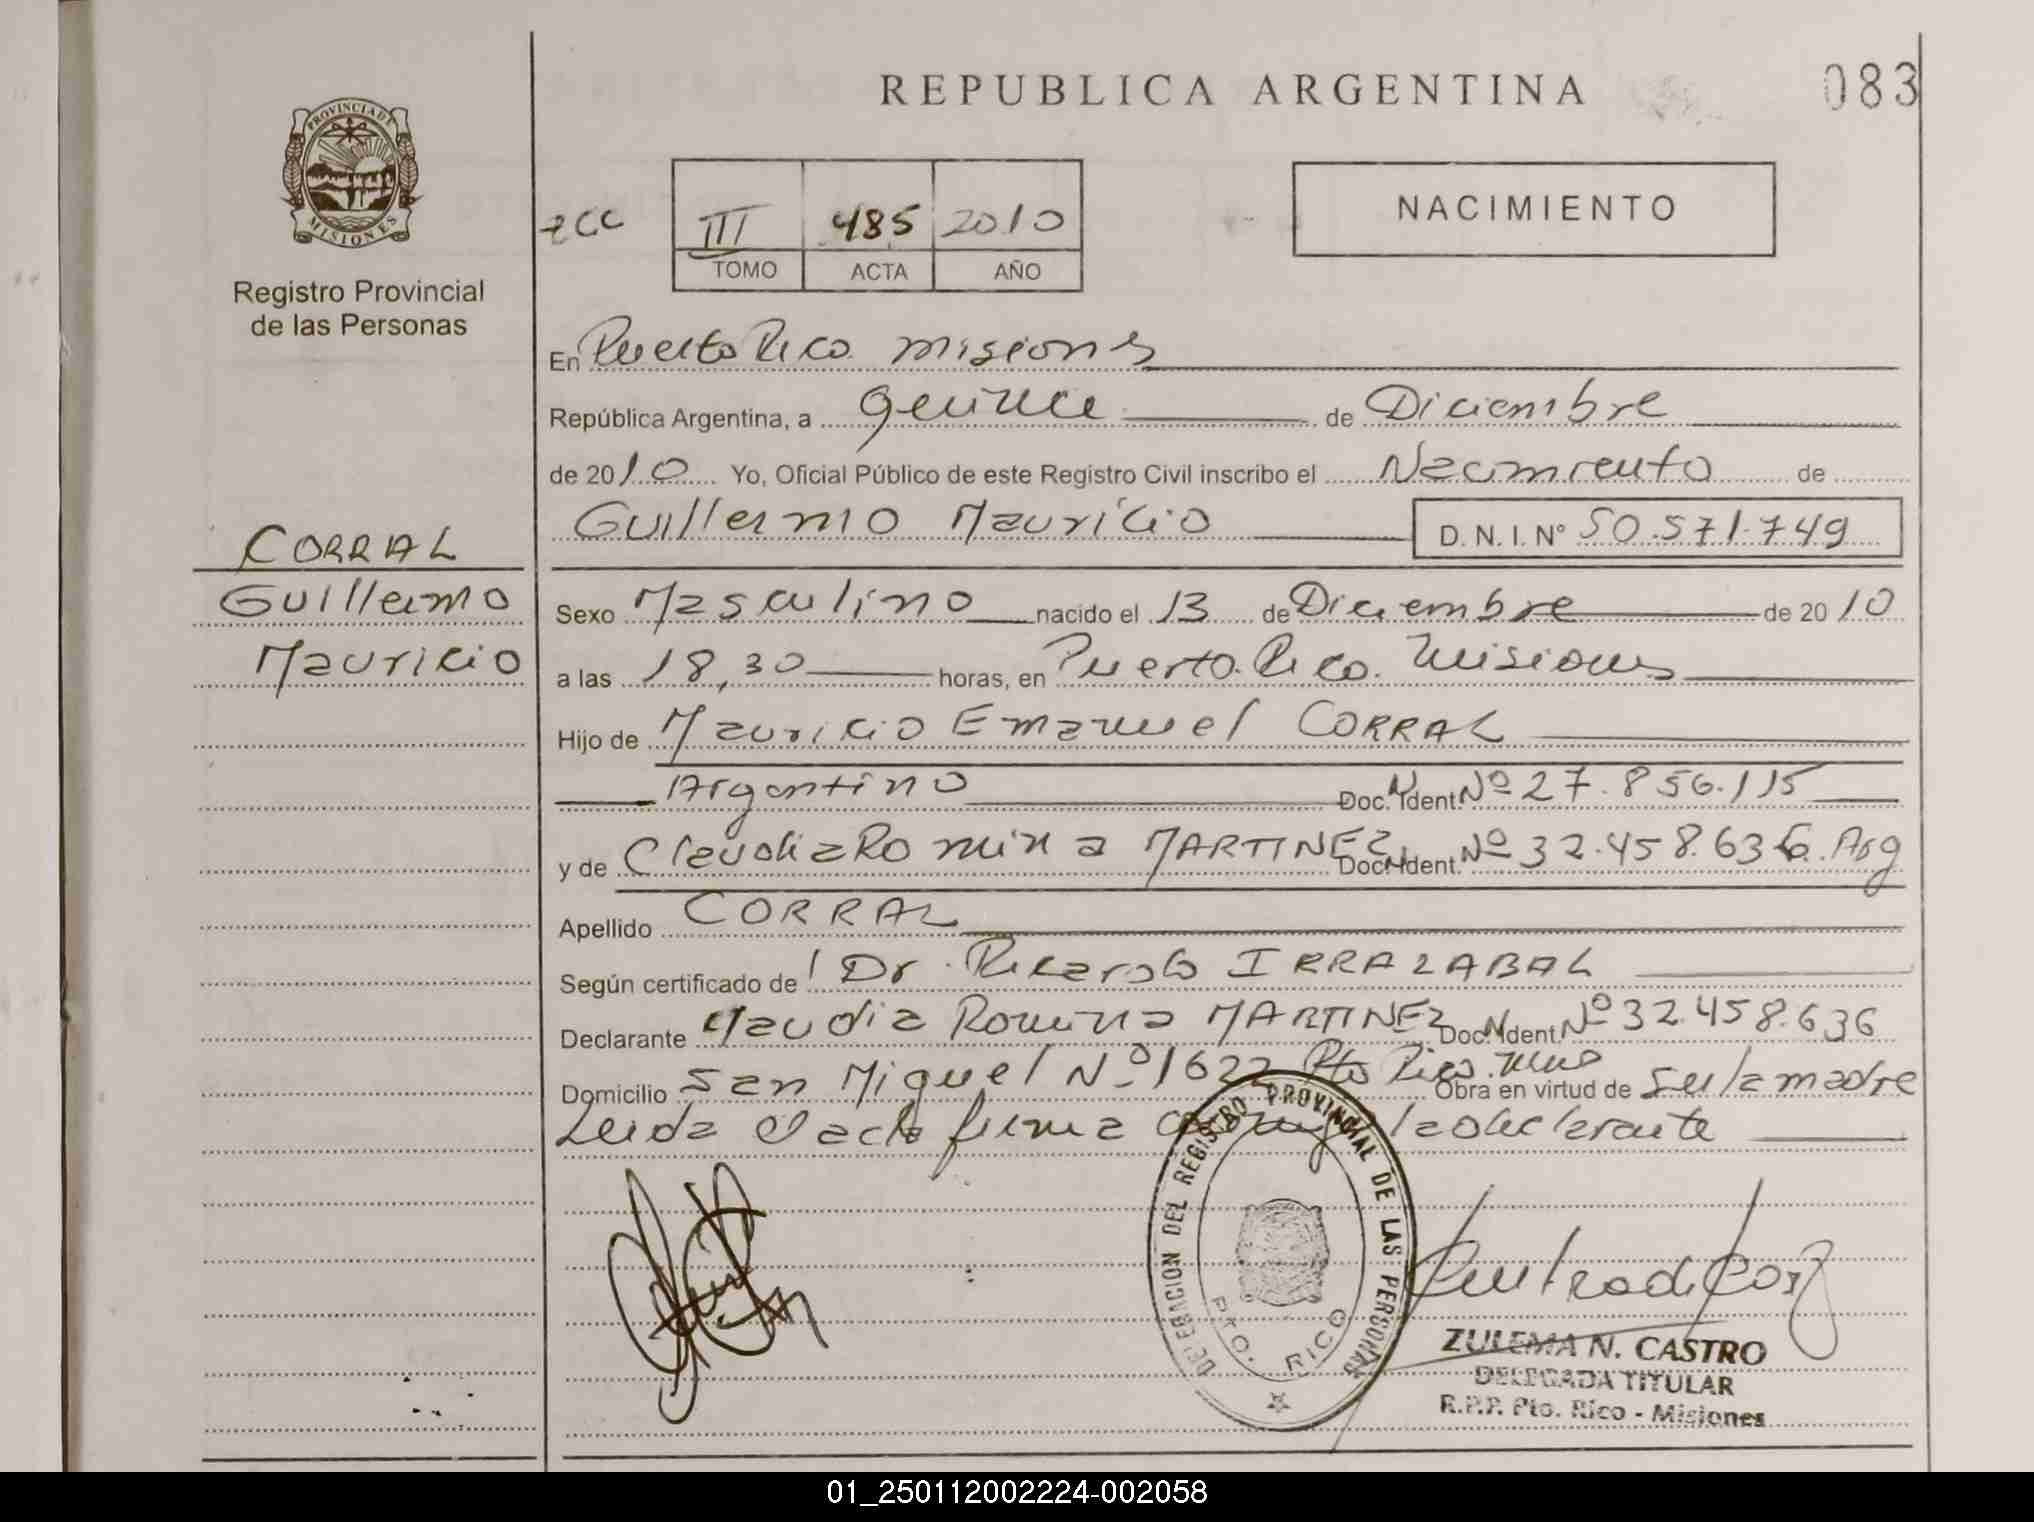 REPUBLICA ARGENTINA
083
PROVINCIA DE
MISIONES
Registro Provincial
de las Personas
III 485 2010
TOMO ACTA AÑO
NACIMIENTO
En Puerto Rico. Misiones
República Argentina, a quince de Diciembre
de 2010 Yo, Oficial Público de este Registro Civil inscribo el Nacimiento de
Guillermo Mauricio D. N. I. Nº 50.571.749
CORRAL
Guillermo
Mauricio
Sexo Masculino nacido el 13 de Diciembre de 2010
a las 18,30 horas, en Puerto Rico. Misiones
Hijo de Mauricio Emanuel CORRAL
Argentino Doc. Ident. Nº 27.856.115
y de Claudia Romina MARTINEZ Doc. Ident. Nº 32.458.636. Arg
Apellido CORRAL
Según certificado de Dr. Ricardo IRRAZABAL
Declarante Claudia Romina MARTINEZ Doc. Ident. Nº 32.458.636
Domicilio San Miguel Nº 1622 Pto Rico. Obra en virtud de ser la madre
Leida el acta firma la declarante
DELEGACION DEL REGISTRO PROVINCIAL DE LAS PERSONAS
PTO. RICO
ZULEMA N. CASTRO
DELEGADA TITULAR
R.P.P. Pto. Rico - Misiones
01_250112002224-002058